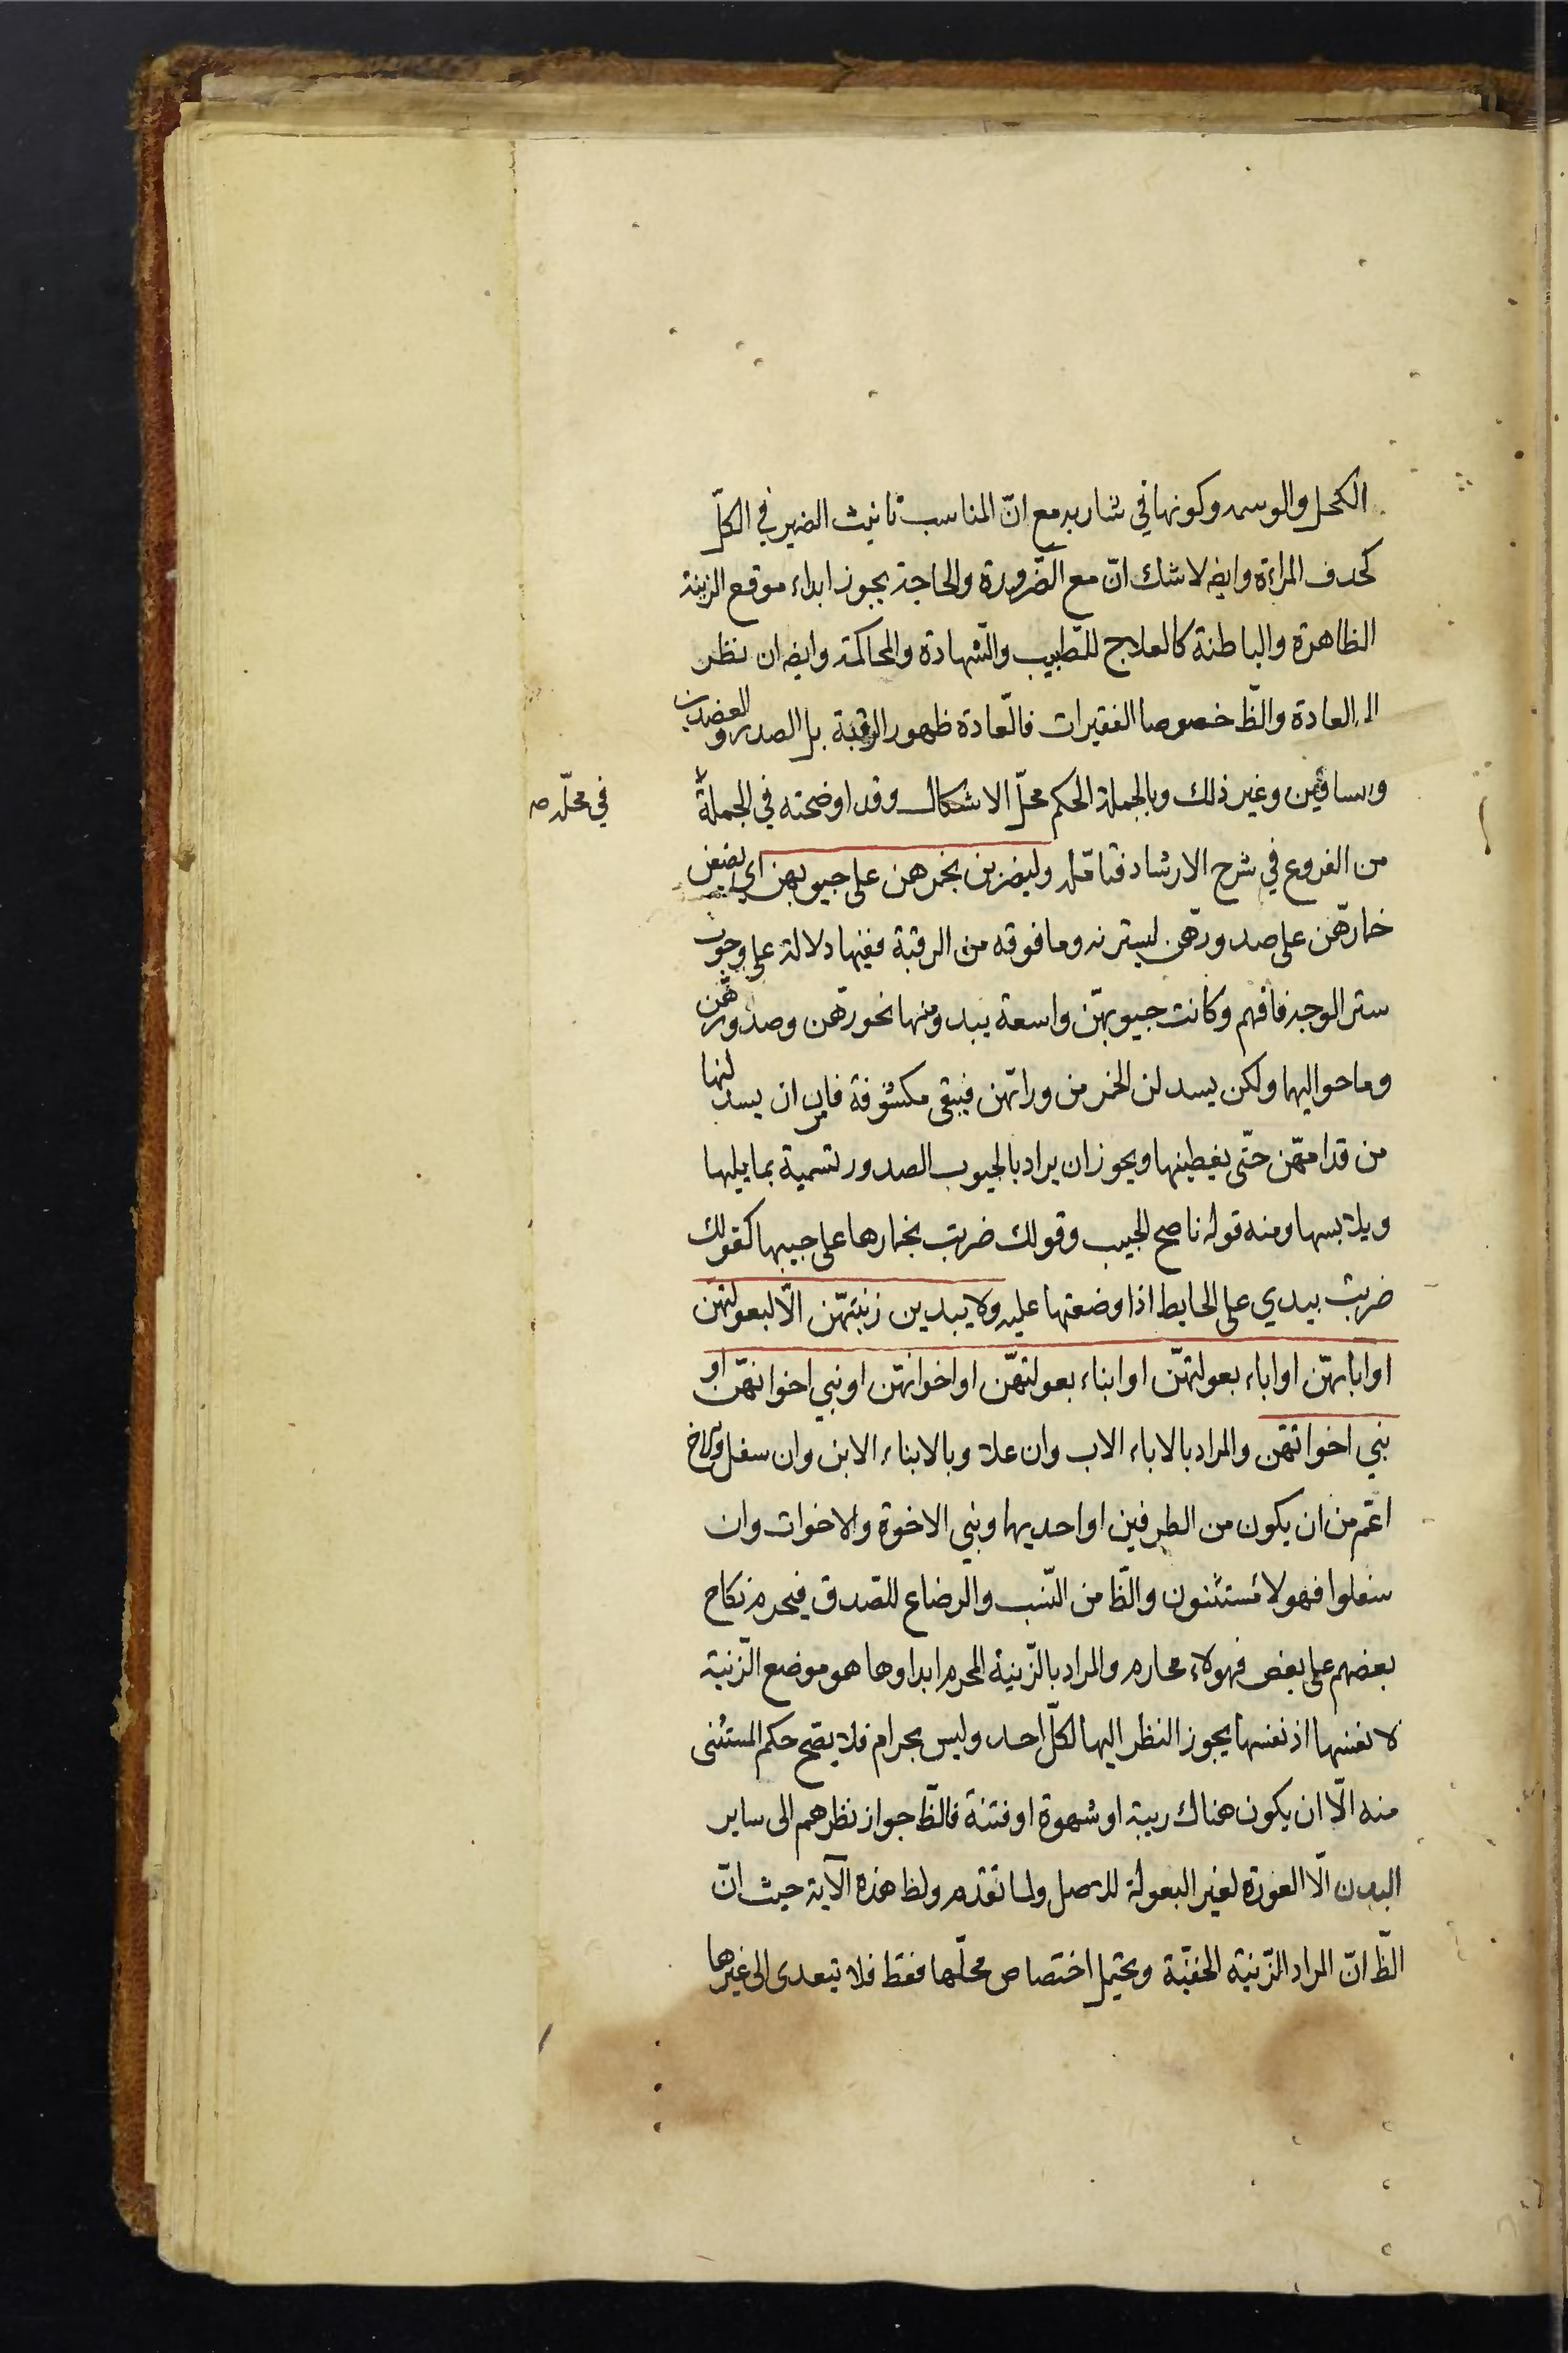 الكحل والوسمه وكونها في شاربه مع انّ المناسب تانيث الضمير في الكلّ
كحدف المراءة وايضه لا شك انّ مع الضّرورة والحاجة يجوز ابداء موقع الزينة
الظاهرة والباطنة كالعلاج للطبيب والشّهادة والمحاكمة وايضه ان نظر
الى العادة والظّ خصوصا الفقيرات فالعادة ظهور الرقبة بل الصدر والعضدين
والساقين وغير ذلك وبالجملة الحكم محلّ الاشكال وقد اوضحته في الجملة
في محلّه صه
من الفروع في شرح الارشاد فتامّل وليضربن بخمرهن على جيوبهن اي يضعن
خمارهّن على صدورهّن ليسترنه وما فوقه من الرقبة ففيها دلالة على وجوب
ستر الوجه فافهم وكانت جيوبهنّ واسعة يبدو منها نحورهّن وصدورهّن
وما حواليها ولكن يسدلن الخمر من ورائهن فيبقى مكشوفة فامر ان يسدلنها
من قدامهّن حتّى يغطينها ويجوز ان يراد بالجيوب الصدور تسمية بما يليها
ويلابسها ومنه قوله ناصح الجيب وقولك ضربت بخمارها على جيبها كقولك
ضربت بيدي على الحايط اذا وضعتها عليه ولا يبدين زينتهّن الّا لبعولتهن
او ابائهنّ او اباء بعولتهنّ او ابناء بعولتهنّ او اخوانهنّ او بني اخوانهنّ او
بني اخواتهّن والمراد بالاباء الاب وان علا وبالابناء الابن وان سفل وبالاخ
اعّم من ان يكون من الطرفين او احديهما وبني الاخوة والاخوات وان
سفلوا فهولا مستثنون والظّا من النّسب والرضاع للصّدق فيحرم نكاح
بعضهم على بعض فهولاء محارم والمراد بالزّينة المحرم ابداوها هو موضع الزّينة
لا نفسها اذ نفسها يجوز النظر اليها لكلّ احد وليس بحرام فلا يصّح حكم المستثنى
منه الّا ان يكون هناك ريبة او شهوة او فتنة فالظّ جواز نظرهم الى ساير
البدن الّا العورة لغير البعولة للاصل ولما تقدم ولظ هذه الآية حيث انّ
الظّ انّ المراد الزّينة الخفيّة ويحتمل اختصاص محلّها فقط فلا تبعدى الى غيرها